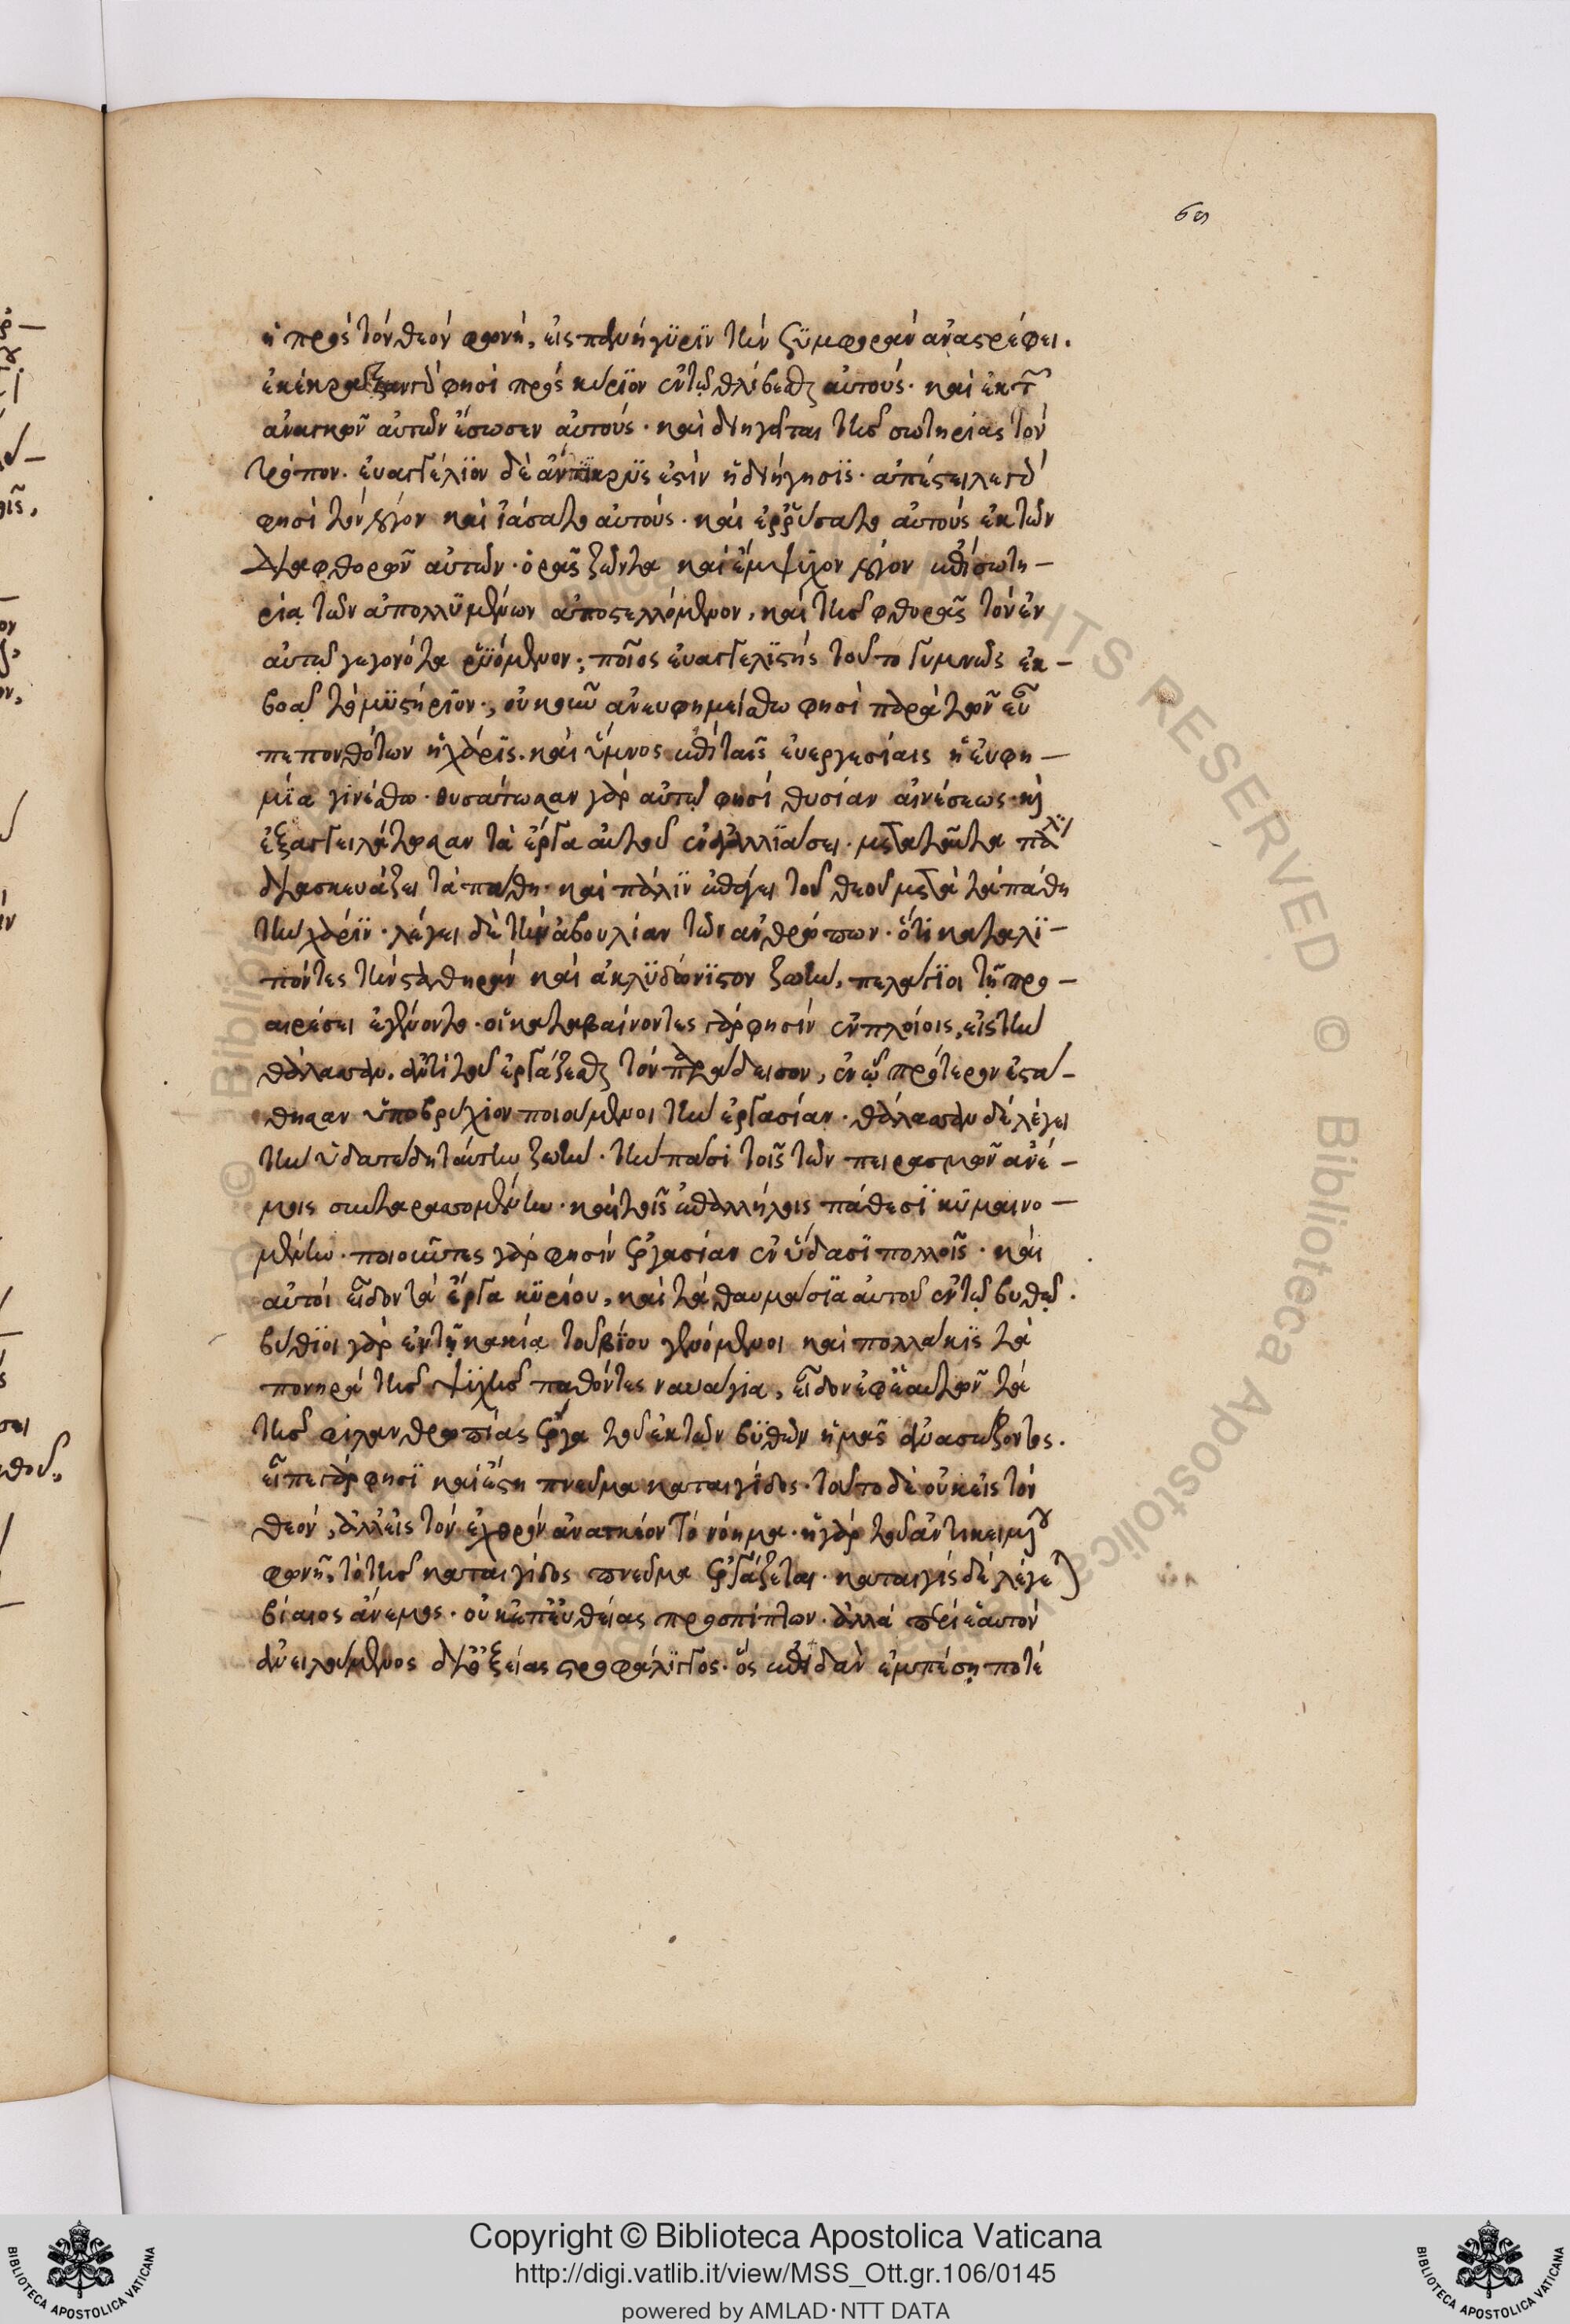 69
ἡ πρὸς τὸν θεὸν φωνὴ, εἰς πανήγυριν τὴν ξυμφορὰν ἀναστρέφει.
ἐκέκραξαν γὰρ φησὶ πρὸς κύριον ἐν τῷ θλίβεσθαι αὐτούς· καὶ ἐκ τῶν
ἀναγκῶν αὐτῶν ἔσωσεν αὐτούς· καὶ διηγεῖται τῆς σωτηρίας τὸν
τρόπον. εὐαγγέλιον δὲ ἄντικρυς ἐστὶν ἡ διήγησις· ἀπέστειλε γὰρ
φησὶ τὸν λόγον καὶ ἰάσατο αὐτούς· καὶ ἐρρύσατο αὐτοὺς ἐκ τῶν
διαφθορῶν αὐτῶν· ὁρᾶς ζῶντα καὶ ἔμψυχον λόγον ἐπὶ σωτη-
ρίᾳ τῶν ἀπολλυμένων ἀποστελλόμενον, καὶ τῆς φθορᾶς τὸν ἐν
αὐτῷ γεγονότα ῥυόμενον; ποῖος εὐαγγελιστὴς τοῦτο γυμνῶς ἐκ-
βοᾷ τὸ μυστήριον; οὐκοῦν ἀνευφημείσθω φησὶ παρὰ τῶν εὖ
πεπονθότων ἡ χάρις· καὶ ὕμνος ἐπὶ ταῖς εὐεργεσίαις ἡ εὐφη-
μία γινέσθω· θυσάτωσαν γὰρ αὐτῷ φησὶ θυσίαν αἰνέσεως· καὶ
ἐξαγγειλάτωσαν τὰ ἔργα αὐτοῦ ἐν ἀγαλλιάσει· μετὰ ταῦτα πάλιν
διασκευάζει τὰ πάθη· καὶ πάλιν ἐπάγει τοῦ θεοῦ μετὰ τὰ πάθη
τὴν χάριν· λέγει δὲ τὴν ἀβουλίαν τῶν ἀνθρώπων· ὅτι καταλι-
πόντες τὴν σταθηρὰν καὶ ἀκλυδώνιστον ζωὴν, πελάγιοι τῇ προ-
αιρέσει ἐγένοντο· οἱ καταβαίνοντες γάρ φησιν ἐν πλοίοις, εἰς τὴν
θάλασσαν, ἀντὶ τοῦ ἐργάζεσθαι τὸν παράδεισον, ἐν ᾧ πρότερον ἐστά-
θησαν ὑποβρύχιον ποιούμενοι τὴν ἐργασίαν· θάλασσαν δὲ λέγει
τὴν ὑδατώδη ταύτην ζωὴν· τὴν πᾶσι τοῖς τῶν πειρασμῶν ἀνέ-
μοις συνταρασσομένην· καὶ τοῖς ἐπαλλήλοις πάθεσι κυμαινο-
μένην· ποιοῦντες γάρ φησιν ἐργασίαν ἐν ὕδασι πολλοῖς· καὶ
αὐτοὶ εἶδον τὰ ἔργα κυρίου, καὶ τὰ θαυμάσια αὐτοῦ ἐν τῷ βυθῷ.
βύθιοι γὰρ ἐν τῇ κακίᾳ τοῦ βίου γενόμενοι καὶ πολλάκις τὰ
πονηρὰ τῆς ψυχῆς παθόντες ναυάγια, εἶδον ἐφ' ἑαυτῶν τὰ
τῆς φιλανθρωπίας ἔργα τοῦ ἐκ τῶν βυθῶν ἡμᾶς ἀνασώζοντος.
εἶπε γάρ φησι καὶ ἔστη πνεῦμα καταιγίδος· τοῦτο δὲ οὐκ εἰς τὸν
θεὸν, ἀλλ' εἰς τὸν ἐχθρὸν ἀνακτέον τὸ νόημα· ἡ γὰρ τοῦ ἀντικειμένου
φωνὴ, τὸ τῆς καταιγίδος πνεῦμα ἐργάζεται· καταιγὶς δὲ λέγεται
βίαιος ἄνεμος· οὐκ ἐπ' εὐθείας προσπίπτων· ἀλλὰ περὶ ἑαυτὸν
ἀνειλούμενος δι' ὀξείας στροφάλιγγος· ὃς ἐπειδὰν ἐμπέσῃ ποτὲ
Copyright © Biblioteca Apostolica Vaticana
http://digi.vatlib.it/view/MSS_Ott.gr.106/0145
powered by AMLAD·NTT DATA